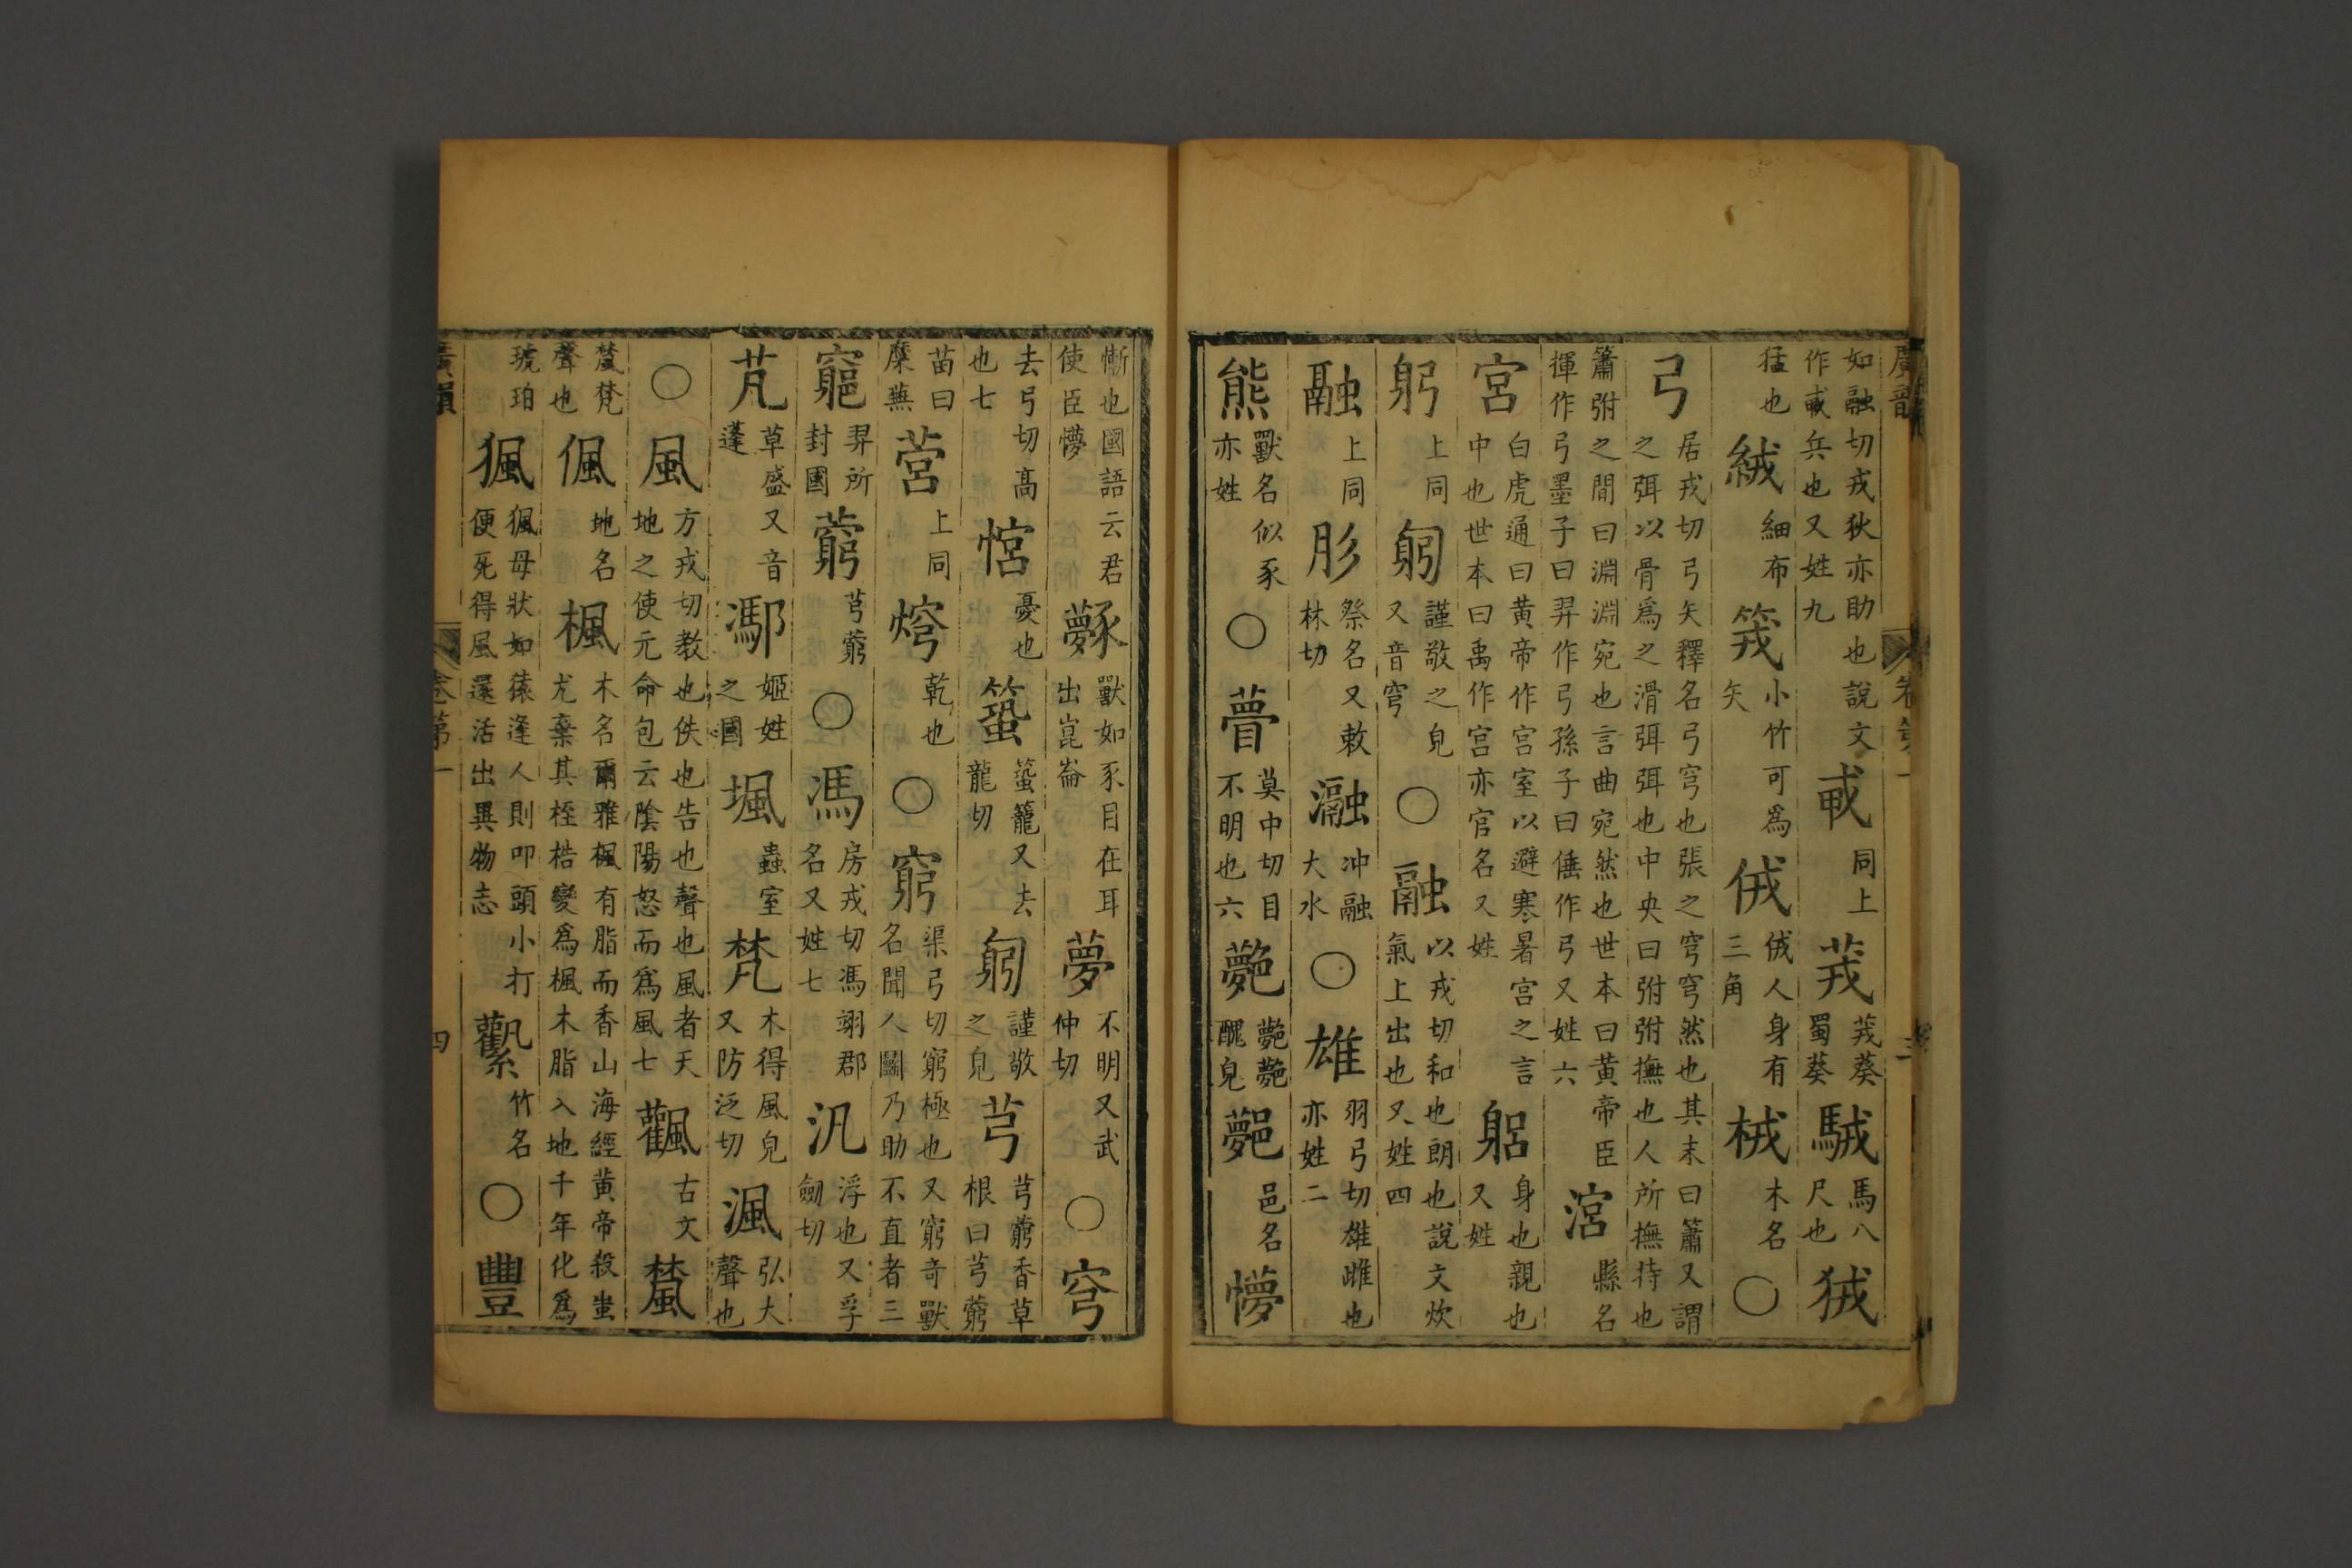 廣韻 卷第一 三
如融切戎狄亦助也說文作𢦦兵也又姓九𢦦同上茙茙葵蜀葵駥馬八尺也狨
猛也絨細布䇯小竹可爲矢㑾㑾人身有三角栻木名〇
弓居戎切弓矢釋名弓穹也張之穹穹然也其末曰簫又謂之弭以骨爲之滑弭弭也中央曰弣弣撫也人所撫持也
簫弣之閒曰淵淵宛也言曲宛然也世本曰黄帝臣揮作弓墨子曰羿作弓孫子曰倕作弓又姓六涫縣名
宮白虎通曰黄帝作宮室以避寒暑宮之言中也世本曰禹作宮亦官名又姓躳身也親也又姓
躬上同䠻謹敬之皃又音穹〇融以戎切和也朗也說文炊氣上出也又姓四
䖝上同肜祭名又敕林切瀜沖融大水〇雄羽弓切雄雌也亦姓二
熊獸名似豕亦姓〇瞢莫中切目不明也六夢夢夢醜皃鄸邑名懜
慚也國語云君使臣懜䝦獸如豕目在耳出崑崙夢不明又武仲切〇穹
去弓切高也七悹憂也𥬔𥬔籠又去龍切䠻謹敬之皃芎芎藭香草根曰芎藭
苗曰蘪蕪营上同焪乾也〇窮渠弓切窮極也又窮奇獸名聞人鬭乃助不直者三
竆羿所封國藭芎藭〇馮房戎切馮翊郡名又姓七汎浮也又孚劒切
芃草盛又音蓬鄬姬姓之國堸蟲室梵木得風皃又防泛切渢弘大聲也
〇風方戎切教也佚也告也聲也風者天地之使元命包云陰陽怒而爲風七飌古文檒
檒梵聲也偑地名楓木名爾雅楓有脂而香山海經黄帝殺蚩尤棄其桎梏變爲楓木脂入地千年化爲
琥珀猦猦母狀如猿逢人則叩頭小打便死得風還活出異物志𥵜竹名〇豐
廣韻 卷第一 四